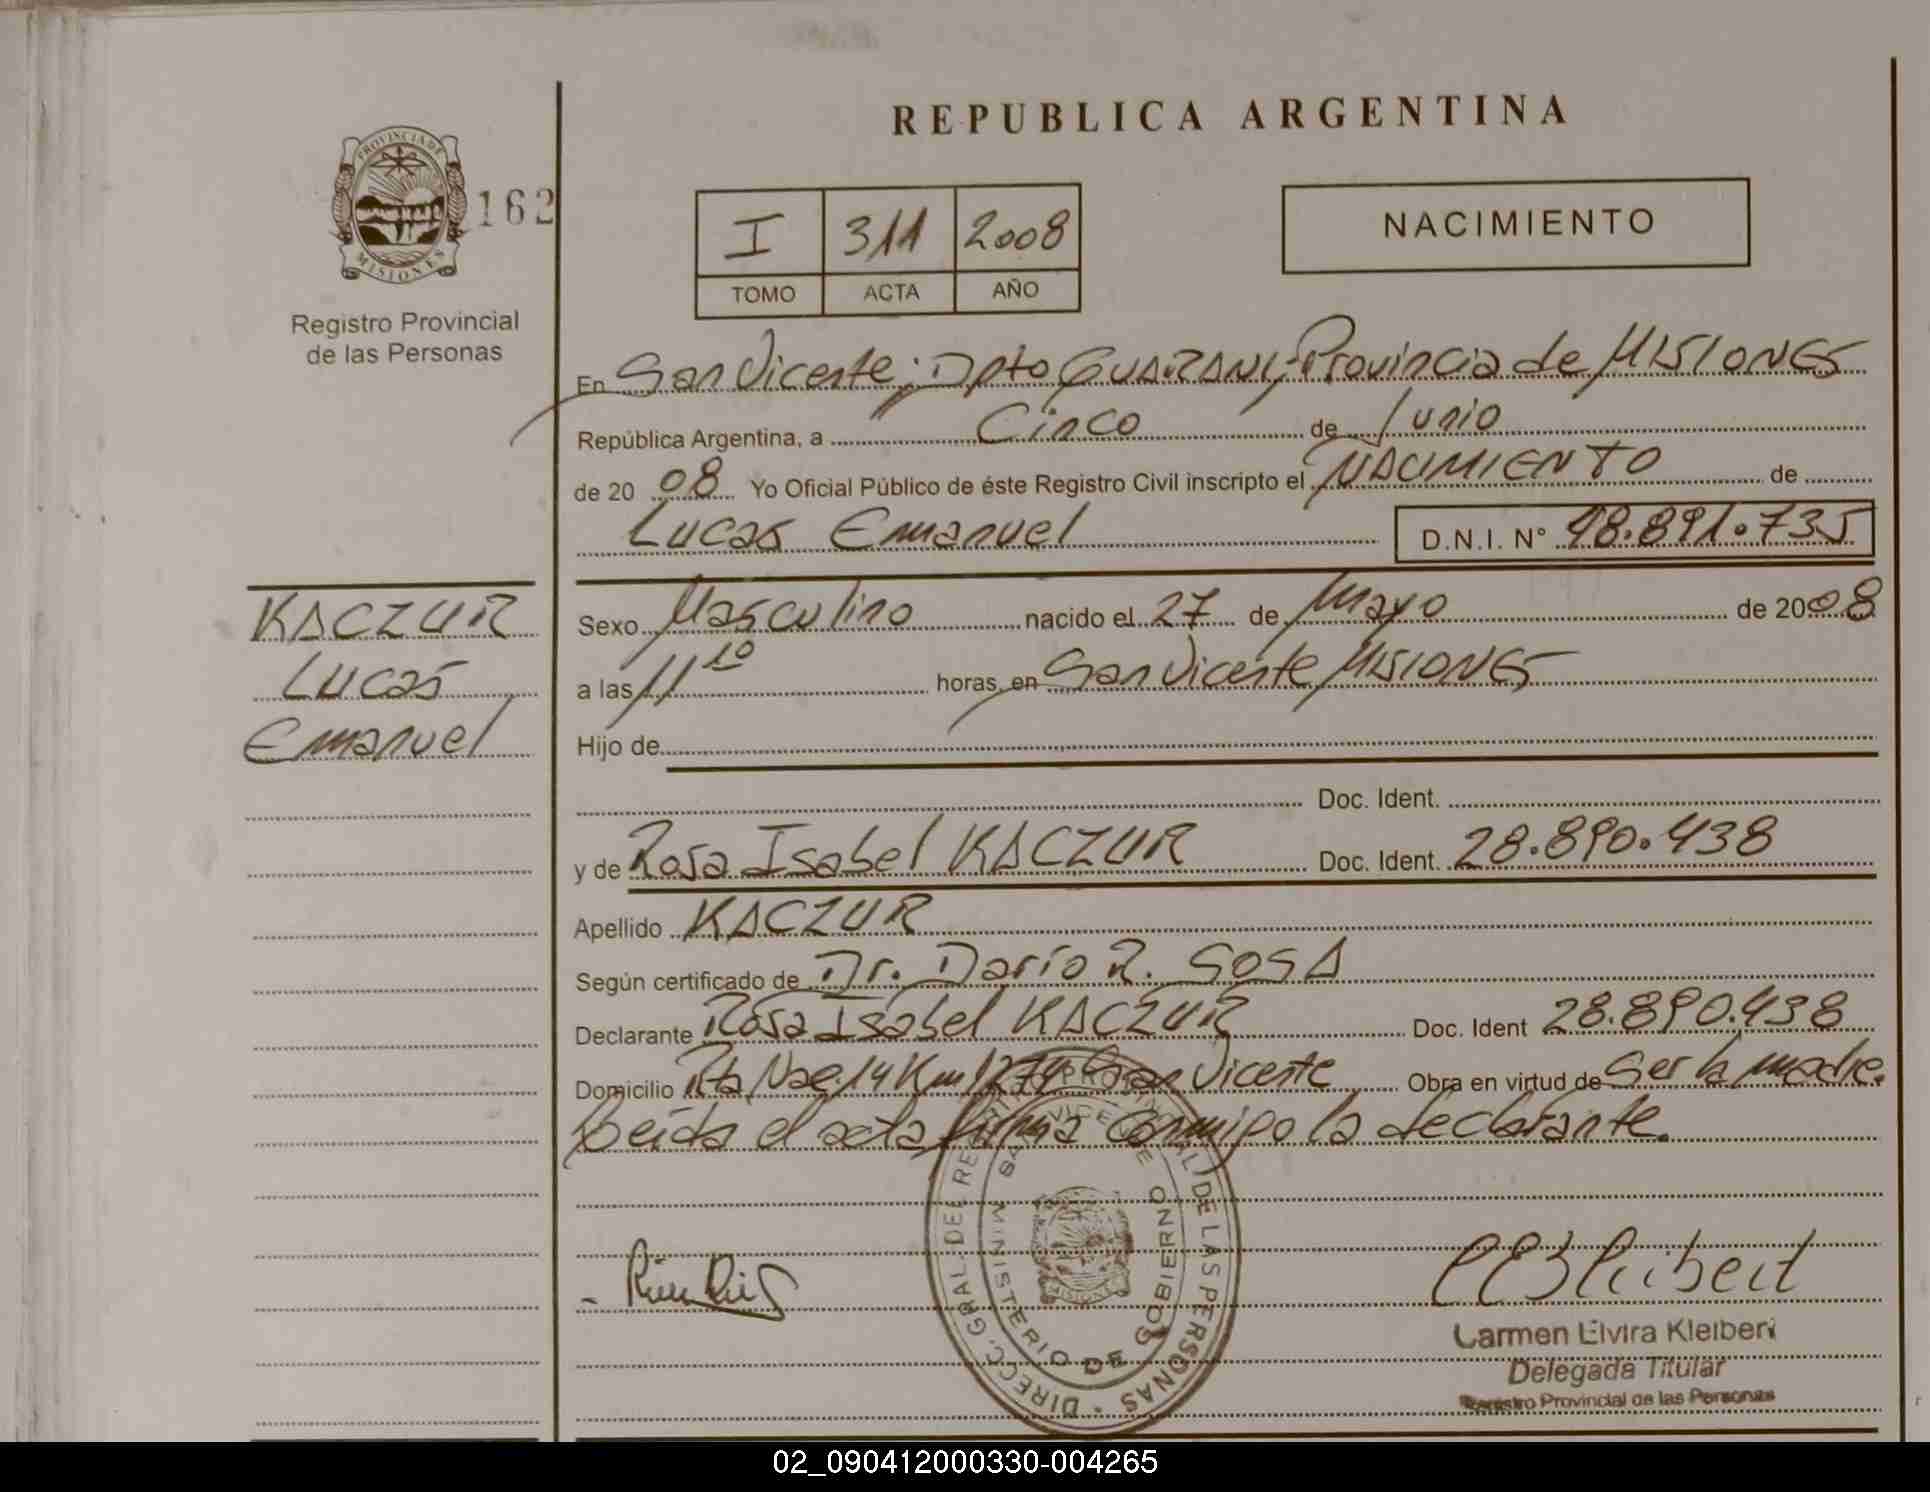 REPUBLICA ARGENTINA
PROVINCIA DE
MISIONES
162
Registro Provincial
de las Personas
I 311 2008
TOMO ACTA AÑO
NACIMIENTO
En San Vicente; Dpto GUARANI, Provincia de MISIONES
República Argentina, a Cinco de Junio
de 20 08 Yo Oficial Público de éste Registro Civil inscripto el NACIMIENTO de
Lucas Emanuel D.N.I. N° 48.891.735
KACZUR
Lucas
Emanuel
Sexo Masculino nacido el 27 de Mayo de 2008
a las 11 10 horas, en San Vicente MISIONES
Hijo de
Doc. Ident.
y de Rosa Isabel KACZUR Doc. Ident. 28.890.438
Apellido KACZUR
Según certificado de Dr. Darío R. SOSA
Declarante Rosa Isabel KACZUR Doc. Ident 28.890.438
Domicilio Rta Nac. 14 Km 1274 San Vicente Obra en virtud de Ser la madre.
Leída el acta firma conmigo la declarante.
DIRECC. GRAL. DEL REGISTRO PROVINCIAL DE LAS PERSONAS
SAN VICENTE
MINISTERIO DE GOBIERNO
MISIONES
Carmen Elvira Kleibert
Delegada Titular
Registro Provincial de las Personas
02_090412000330-004265